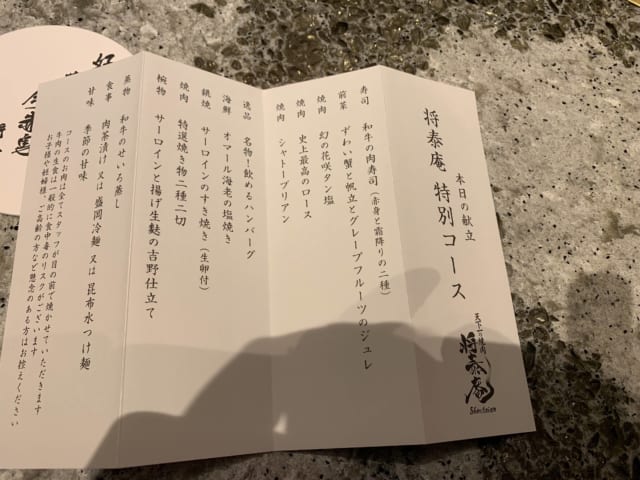 本日の献立
将泰庵 特別コース
天下一の焼肉
将泰庵
Shoutaian
寿司 和牛の肉寿司(赤身と霜降りの二種)
前菜 ずわい蟹と帆立とグレープフルーツのジュレ
焼肉 幻の花咲タン塩
焼肉 史上最高のロース
焼肉 シャトーブリアン
逸品 名物!飲めるハンバーグ
海鮮 オマール海老の塩焼き
鍋焼 サーロインのすき焼き(生卵付)
焼肉 特選焼き物二種二切
椀物 サーロインと揚げ生麩の吉野仕立て
蒸物 和牛のせいろ蒸し
食事 肉茶漬け 又は 盛岡冷麺 又は 昆布水つけ麺
甘味 季節の甘味
コースのお肉は全てスタッフが目の前で焼かせていただきます
牛肉の生食は一般的に食中毒のリスクがございます
お子様や妊婦様、ご高齢の方など懸念のある方はお控えください